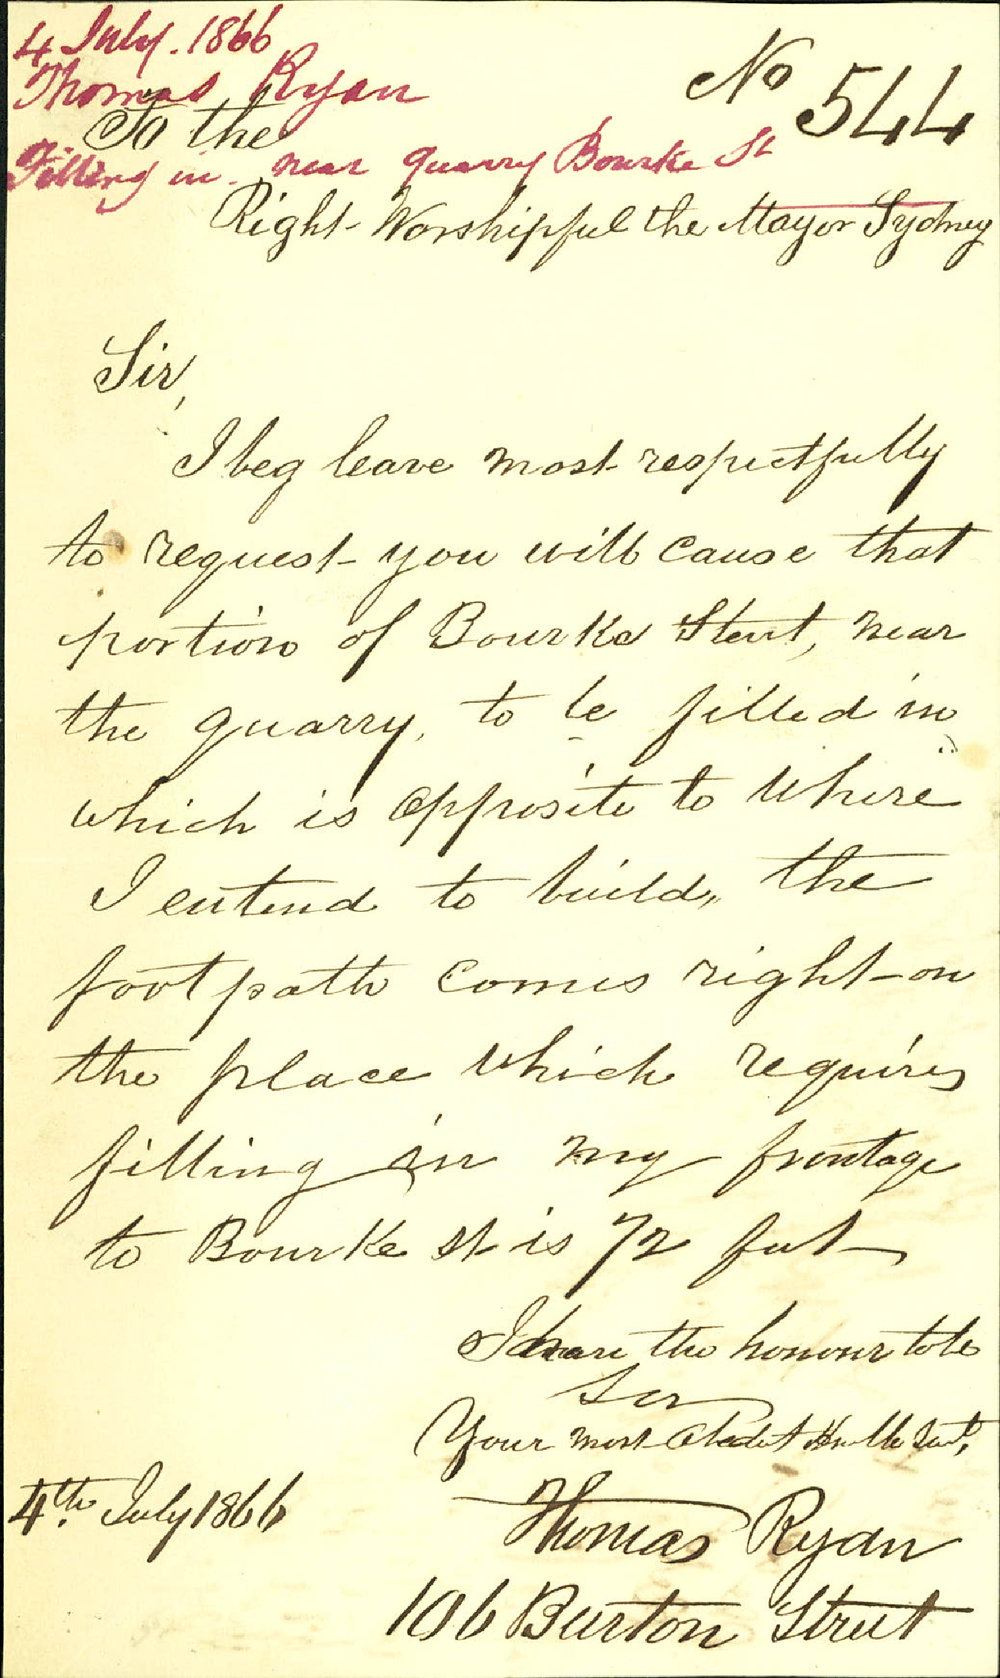 4 July. 1866
Thomas Ryan
No 544
To the
Filling in near quarry Bourke St
Right Worshipful the Mayor Sydney
Sir,
I beg leave most respectfully
to request you will cause that
portion of Bourke Street, near
the quarry, to be filled in
which is opposite to where
I entend to build,, the
footpath comes right on
the place which requires
filling in my frontage
to Bourke st is 72 feet
I have the honour to be
Sir
Your most Obedt Humble Servt,
4th. July 1866
Thomas Ryan
106 Burton Street